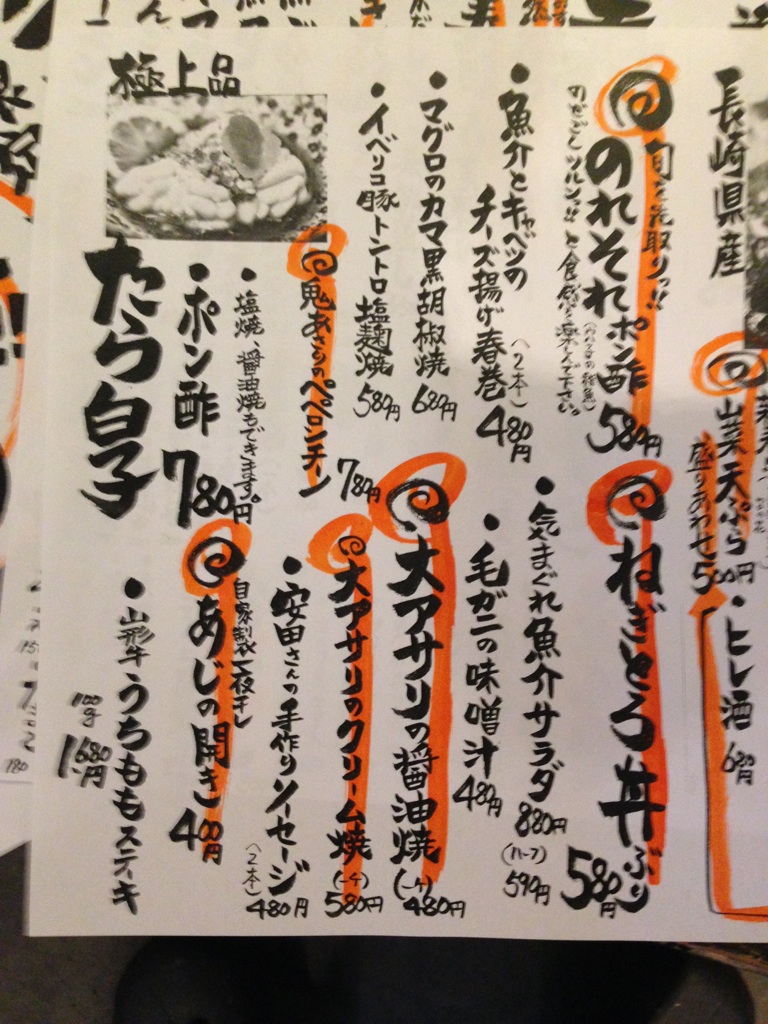 長崎県産
山菜天ぷら
盛りあわせ 500円
・ヒレ酒 680円
旬を先取りっ!!
のれそれポン酢 580円
(アナゴの稚魚)
のどごしツルンっ!! と食感を楽しんで下さい。
ねぎとろ丼ぶり 580円
・魚介とキャベツの
チーズ揚げ春巻 (2本) 480円
・気まぐれ魚介サラダ 880円
(ハーフ) 590円
・マグロのカマ黒胡椒焼 680円
・毛ガニの味噌汁 480円
・イベリコ豚トントロ塩麹焼 580円
大アサリの醤油焼 (一ケ) 480円
鬼あさりのペペロンチーノ 780円
大アサリのクリーム焼 (一ケ) 580円
・安田さんの手作りソーセージ (2本) 480円
極上品
たら白子
・ポン酢 780円
・塩焼、醤油焼もできます。
自家製一夜干し
あじの開き 400円
・山形牛うちももステーキ
100g 1,680円